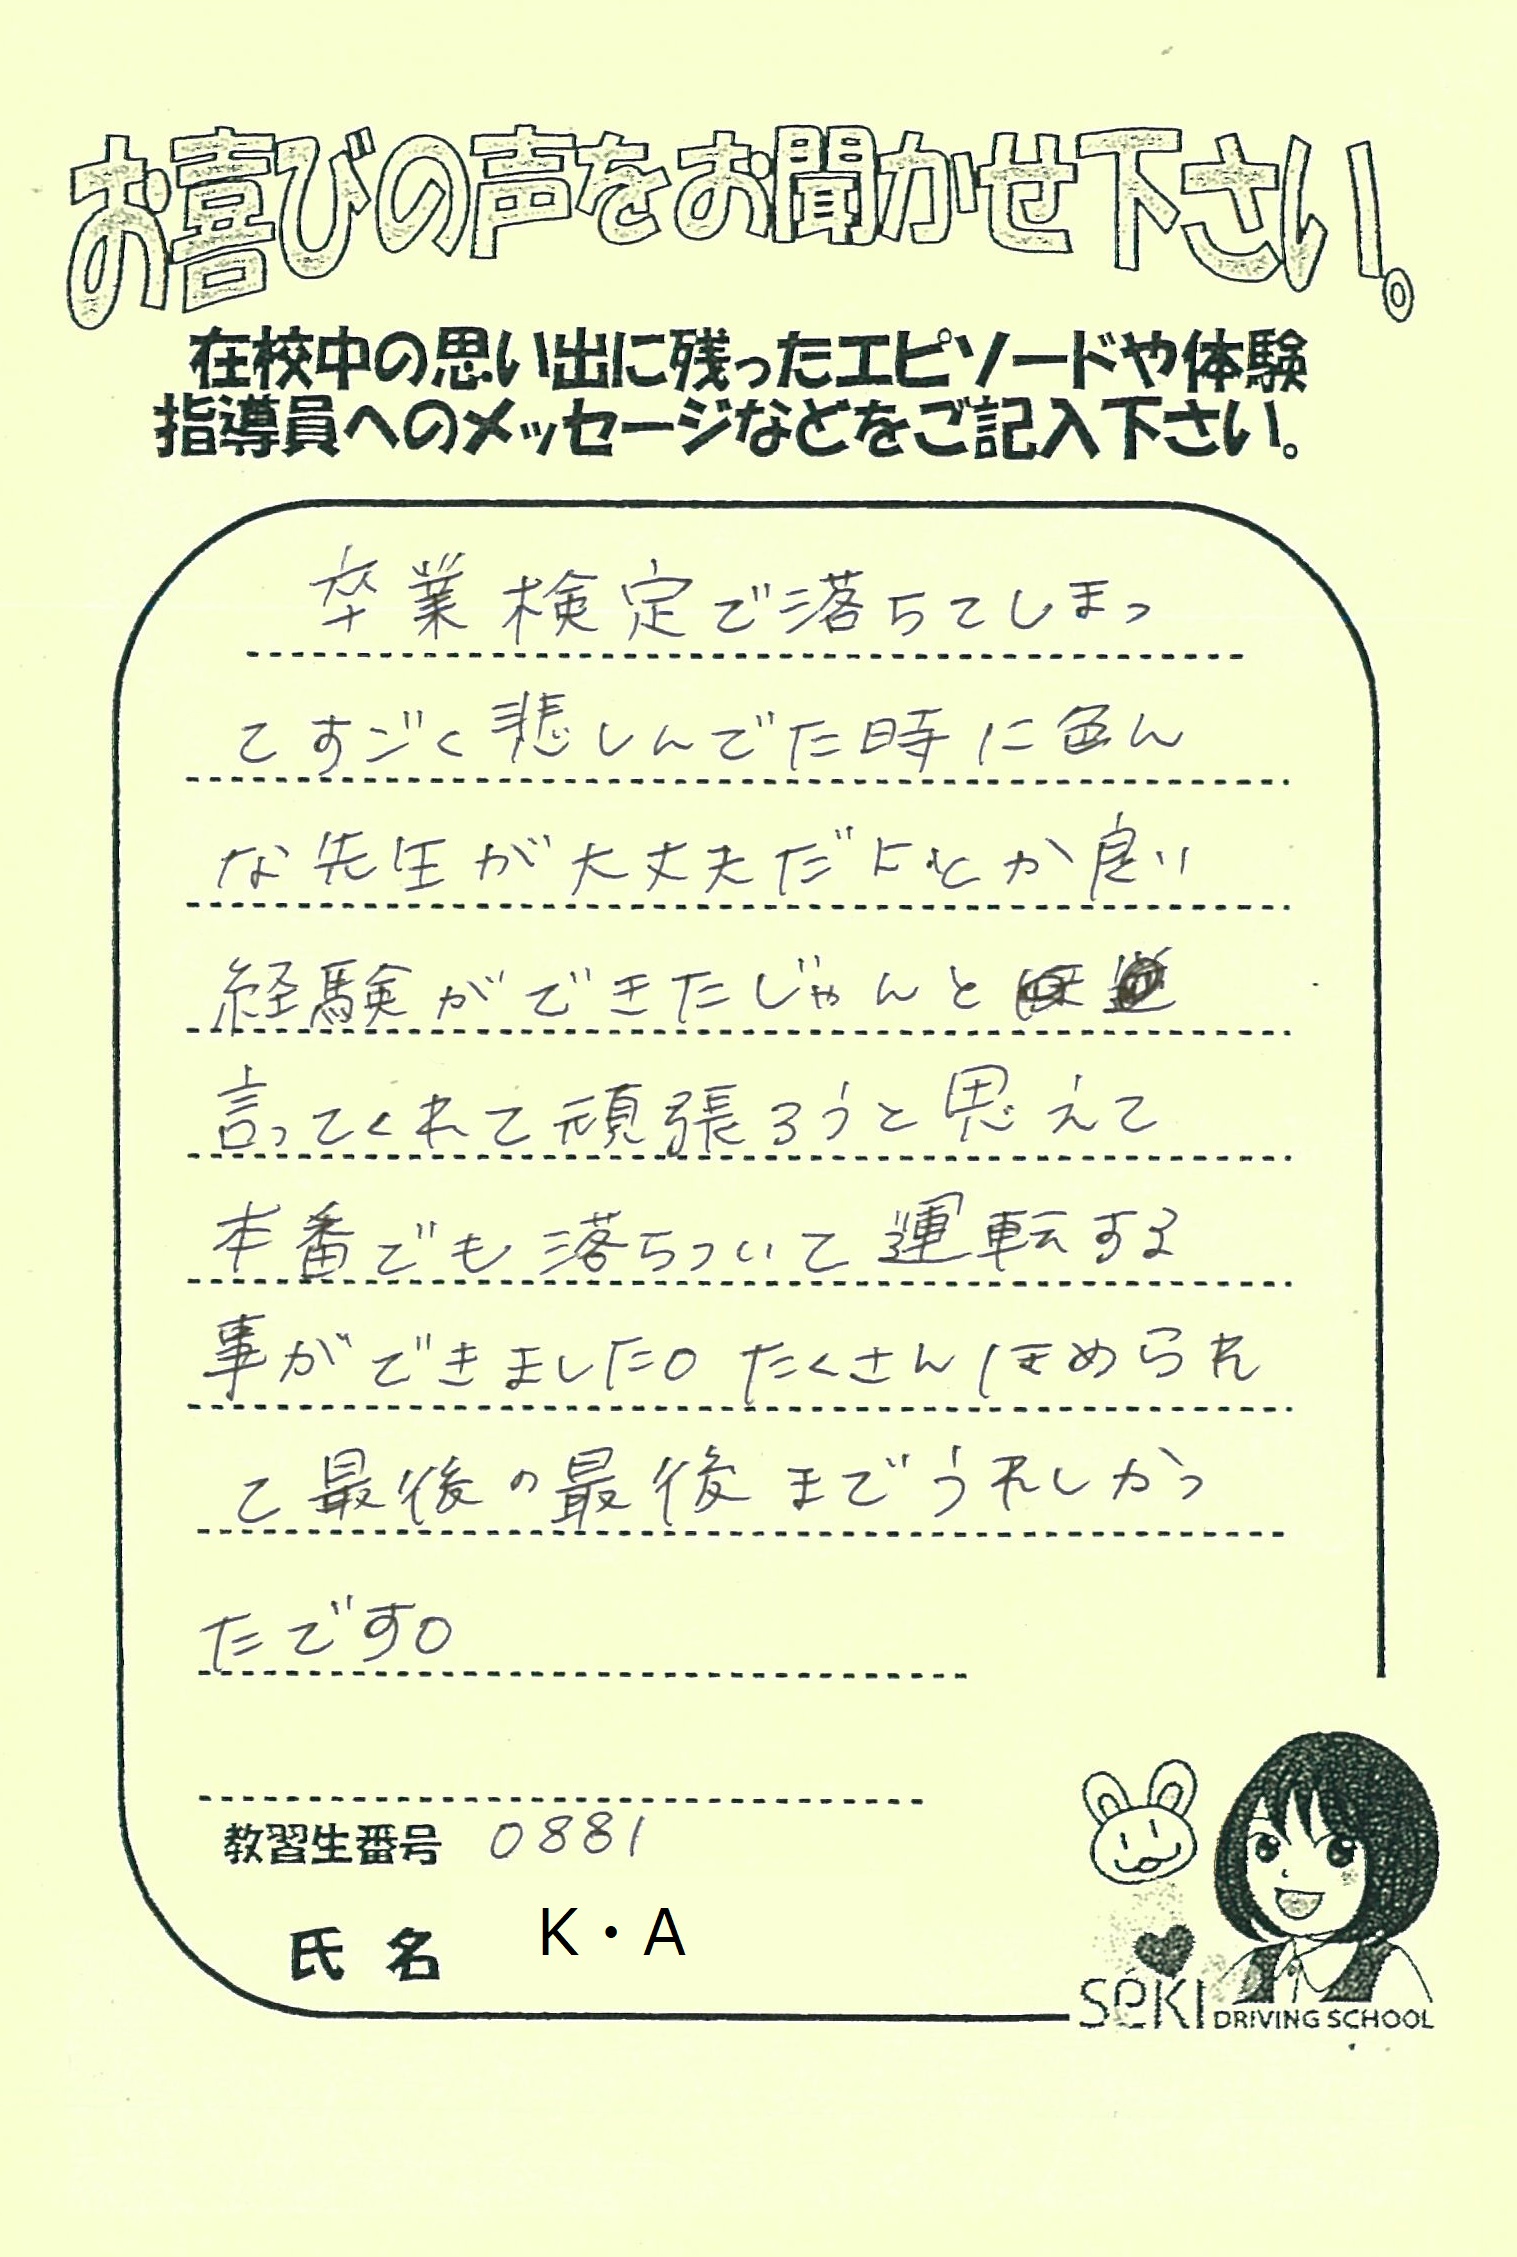 お喜びの声をお聞かせ下さい。
在校中の思い出に残ったエピソードや体験
指導員へのメッセージなどをご記入下さい。
卒業検定で落ちてしまっ
てすごく悲しんでた時に色ん
な先生が大丈夫だよとか良い
経験ができたじゃんと
言ってくれて頑張ろうと思えて
本番でも落ちついて運転する
事ができました。たくさんほめられ
て最後の最後までうれしかっ
たです。
教習生番号 0881
氏名 K・A
SéKI DRIVING SCHOOL